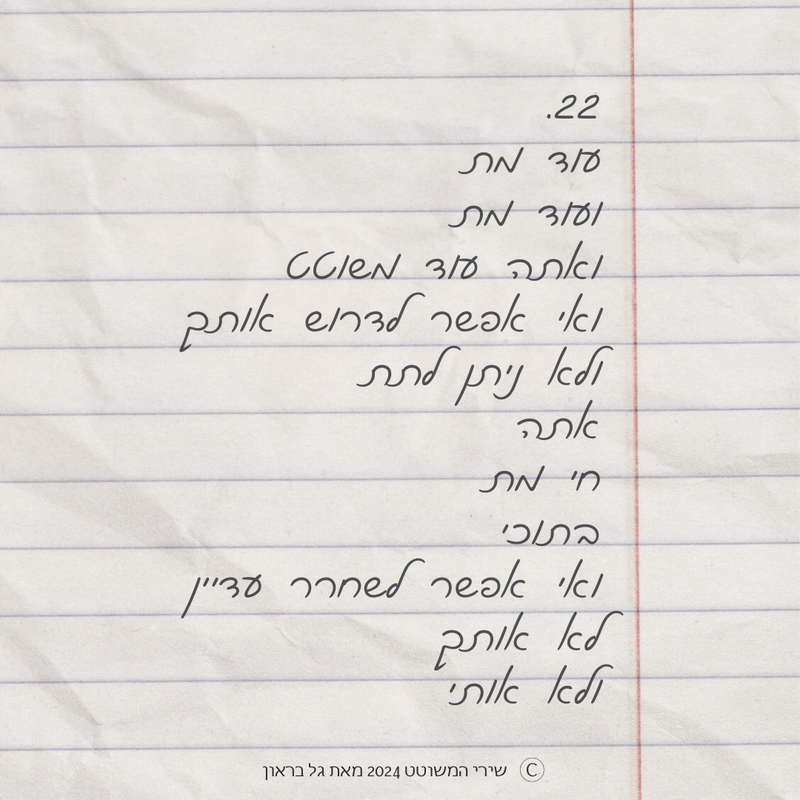 22.
עוד מת
ועוד מת
ואתה עוד משוטט
ואי אפשר לדרוש אותך
ולא ניתן לתת
אתה
חי מת
בתוכי
ואי אפשר לשחרר עדיין
לא אותך
ולא אותי
© שירי המשוטט 2024 מאת גל בראון